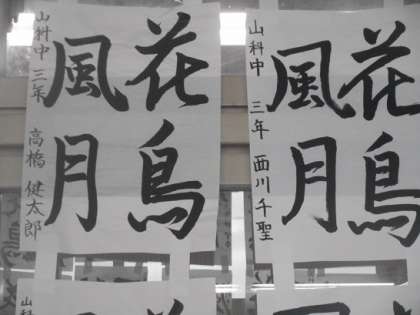 花鳥
風月
山科中 三年 高橋 健太郎
花鳥
風月
山科中 三年 西川 千聖
花
風
山科
花
風